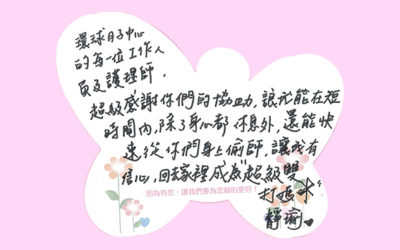 環球月子中心
的每一位工作人
員及護理師,
超級感謝你們的協助,讓我能在短
時間內,除了身心都休息外,還能快
速從你們身上偷師,讓我有
信心,回去家裡成為"超級雙
因為有您,讓我們要為您做的更好!
打媽咪"
靜瑜♥